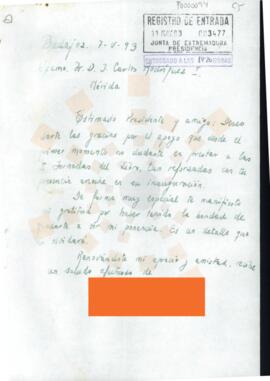 P0000094
REGISTRO DE ENTRADA
003477
JUNTA DE EXTREMADURA
PRESIDENCIA
Badajoz, 7-V-93
Excmo. Sr. D. J. Carlos Rodríguez I.
Mérida
Estimado Presidente y amigo. Deseo
darte las gracias por el apoyo que desde el
primer momento no dudaste en prestar a las
I Jornadas del libro, tan reforzadas con tu
presencia en su inauguración.
De forma muy especial te manifiesto
mi gratitud por haber tenido la bondad de
a oír mi ponencia. Es un detalle que
no olvidaré.
Renovándote mi aprecio y amistad, recibe
un saludo de